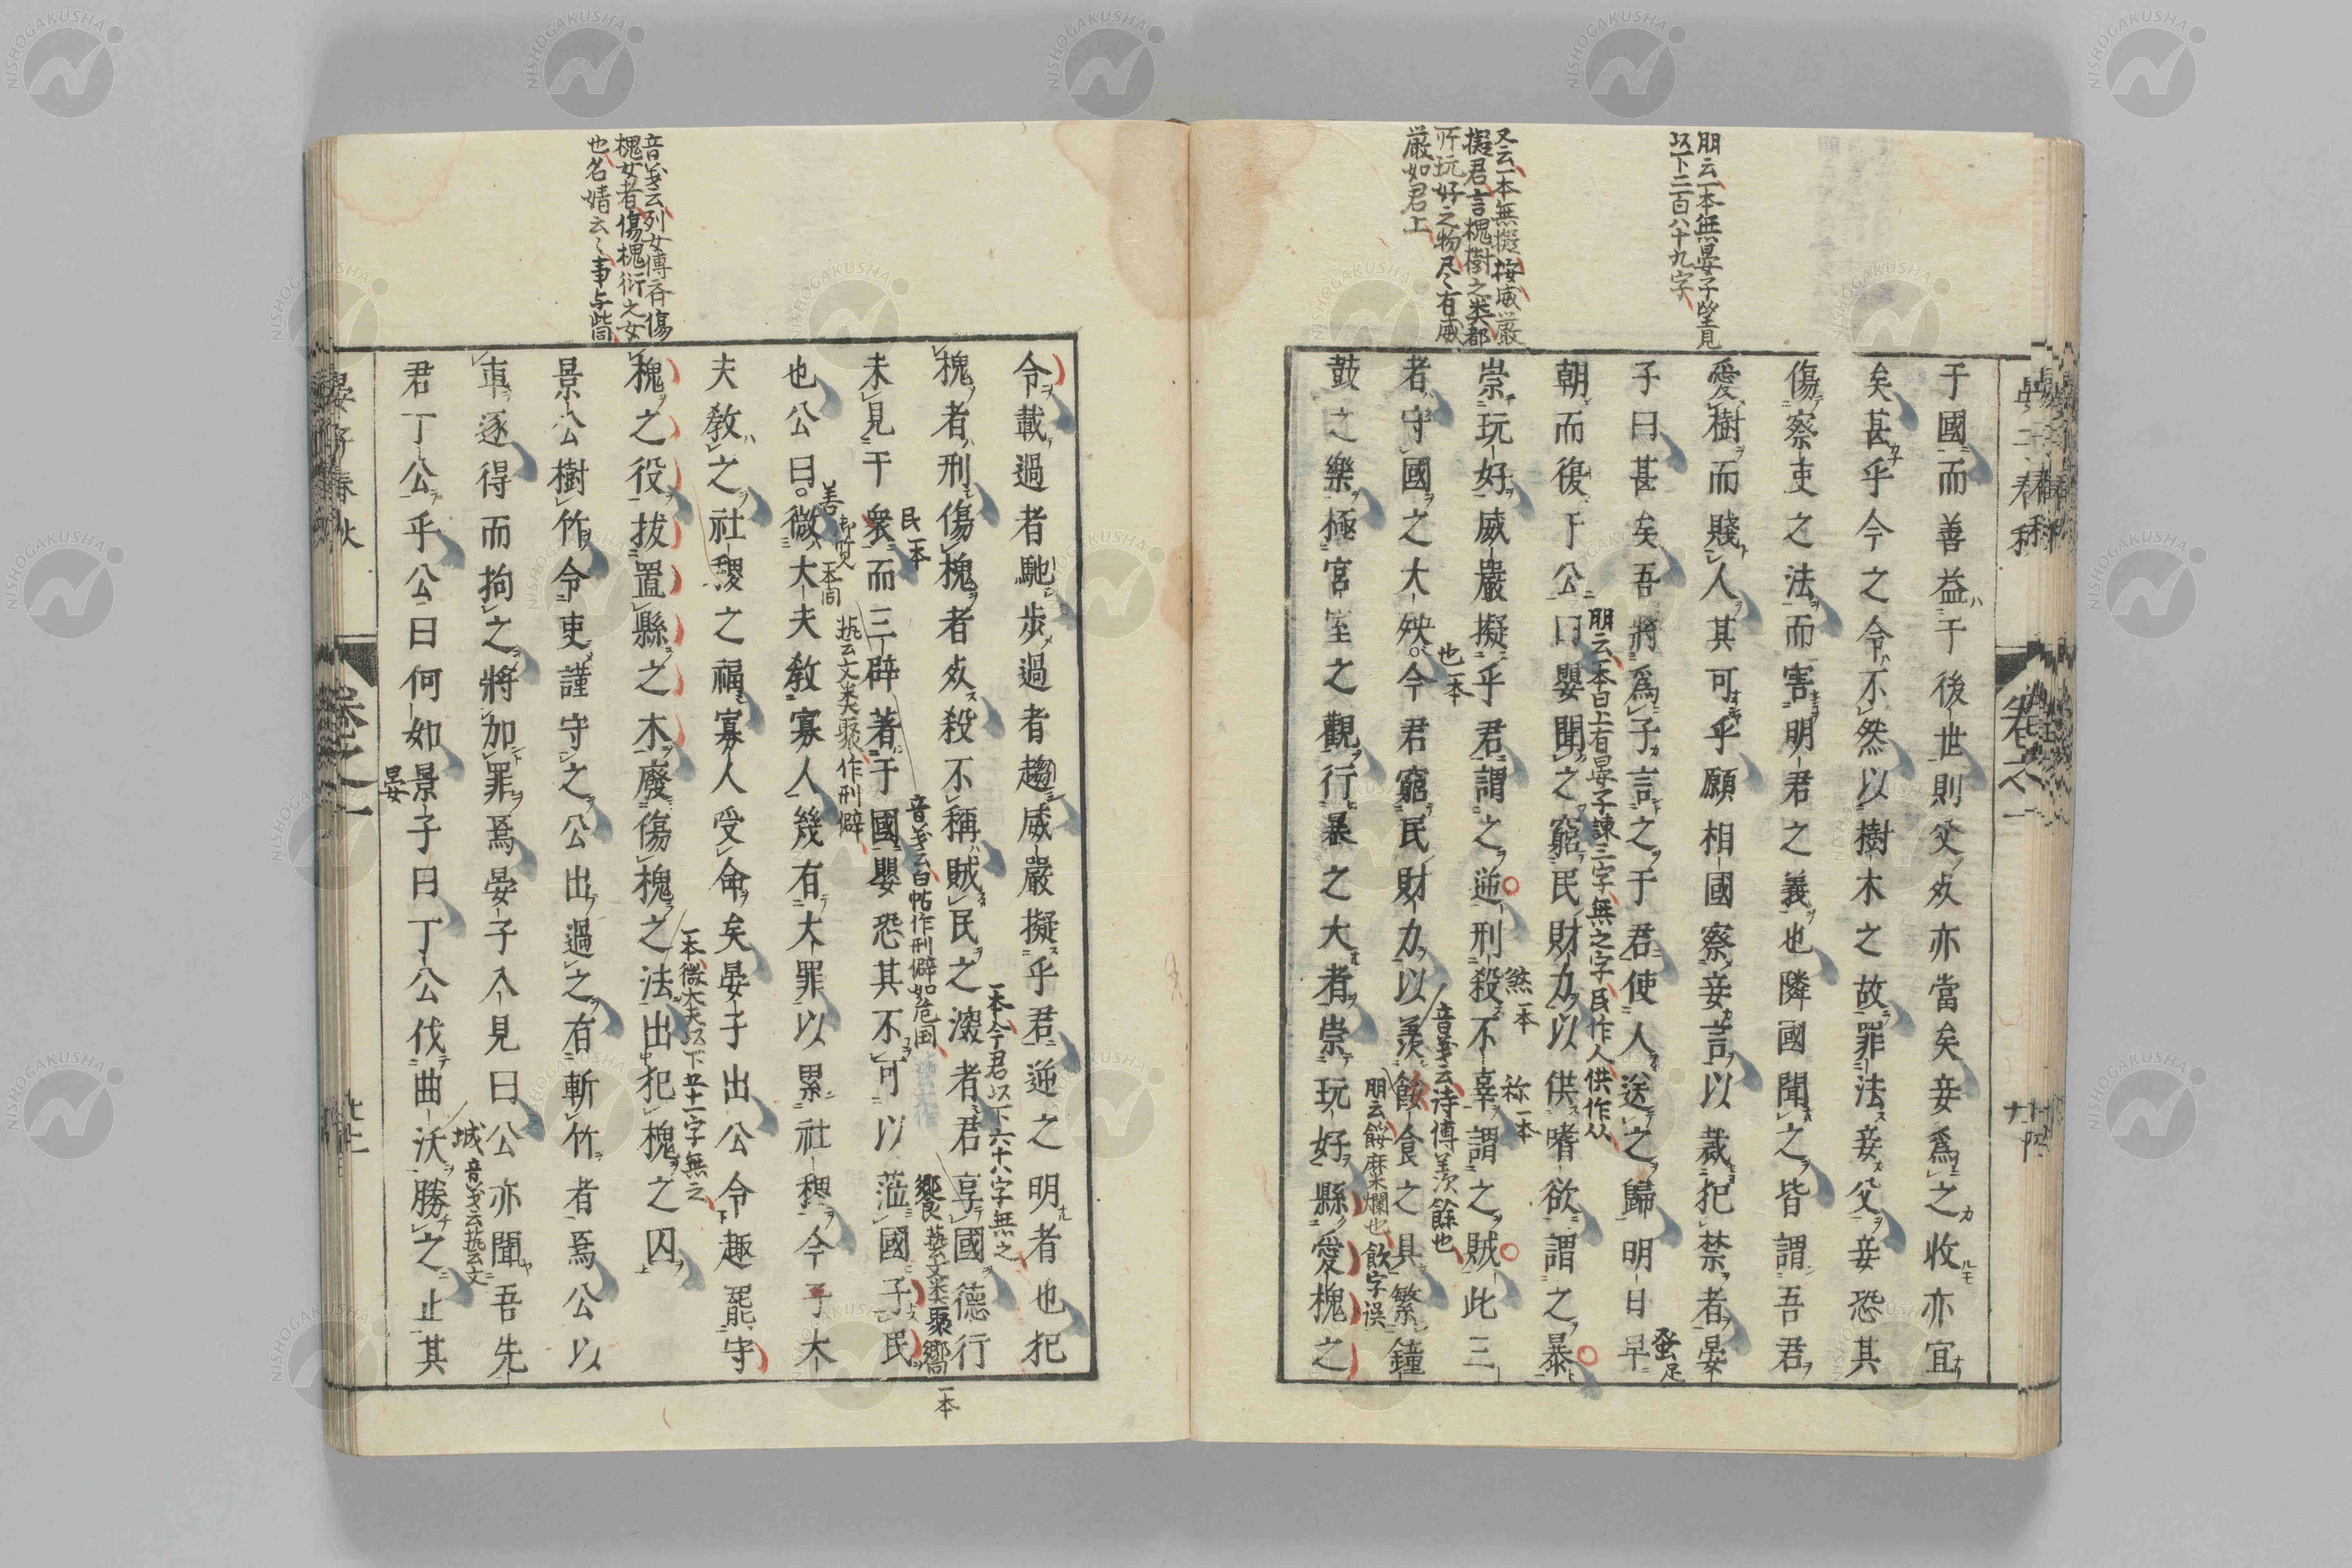 朋云一本無晏子望見
以下二百八十九字
又云一本無擬按威嚴
擬君言槐樹之类都
所玩好之物尽有威
嚴如君上
于國而善益于後世則父死亦當矣妾爲之收亦宜
矣甚乎今之令不然以樹木之故罪法妾父妾恐其
傷察吏之法而害明君之義也隣國聞之皆謂吾君
愛樹而賤人其可乎願相國察妾言以裁犯禁者晏
子曰甚矣吾將爲子言之于君使人送之歸明日早
蚤足
朝而復于公曰嬰聞之窮民財力以供嗜欲謂之暴
朋云一本曰上有晏子諫三字無之字民作人供作从
崇玩好威嚴擬乎君謂之逆刑殺不辜謂之賊此三
煞一本
祢一本
者守國之大殃今君窮民財力以羨餕食之具繁鐘
也一本
音義云诗傳羨餘也
朋云餕麻米爛也飲字误
鼓之樂極宮室之觀行暴之大者崇玩好縣愛槐之
晏子春秋
卷之一
音義云列女傳呑傷
槐女者傷槐衍之女
也名婧云〻事与此同
令載過者馳步過者趨威嚴擬乎君逆之明者也犯
槐者刑傷槐者死殺不稱賊民之深者君享國德行
一本今君以下六十八字無之
未見于衆而三辟著于國嬰恐其不可以蒞國子民
民一本
音義云白帖作刑僻如危国
饗藝文类聚嚮一本
也公曰微大夫教寡人幾有大罪以累社稷今子大
善一本同
藝云文类聚作刑僻
夫教之社稷之福寡人受命矣晏子出公令趣罷守
槐之役拔置縣之木廢傷槐之法出犯槐之囚
一本微大夫以下五十一字無之
景公樹竹令吏謹守之公出過之有斬竹者焉公以
車逐得而拘之將加罪焉晏子入見曰公亦聞吾先
君丁公乎公曰何如景子曰丁公伐曲沃勝之止其
晏
城音義云藝文
晏子春秋
卷之一